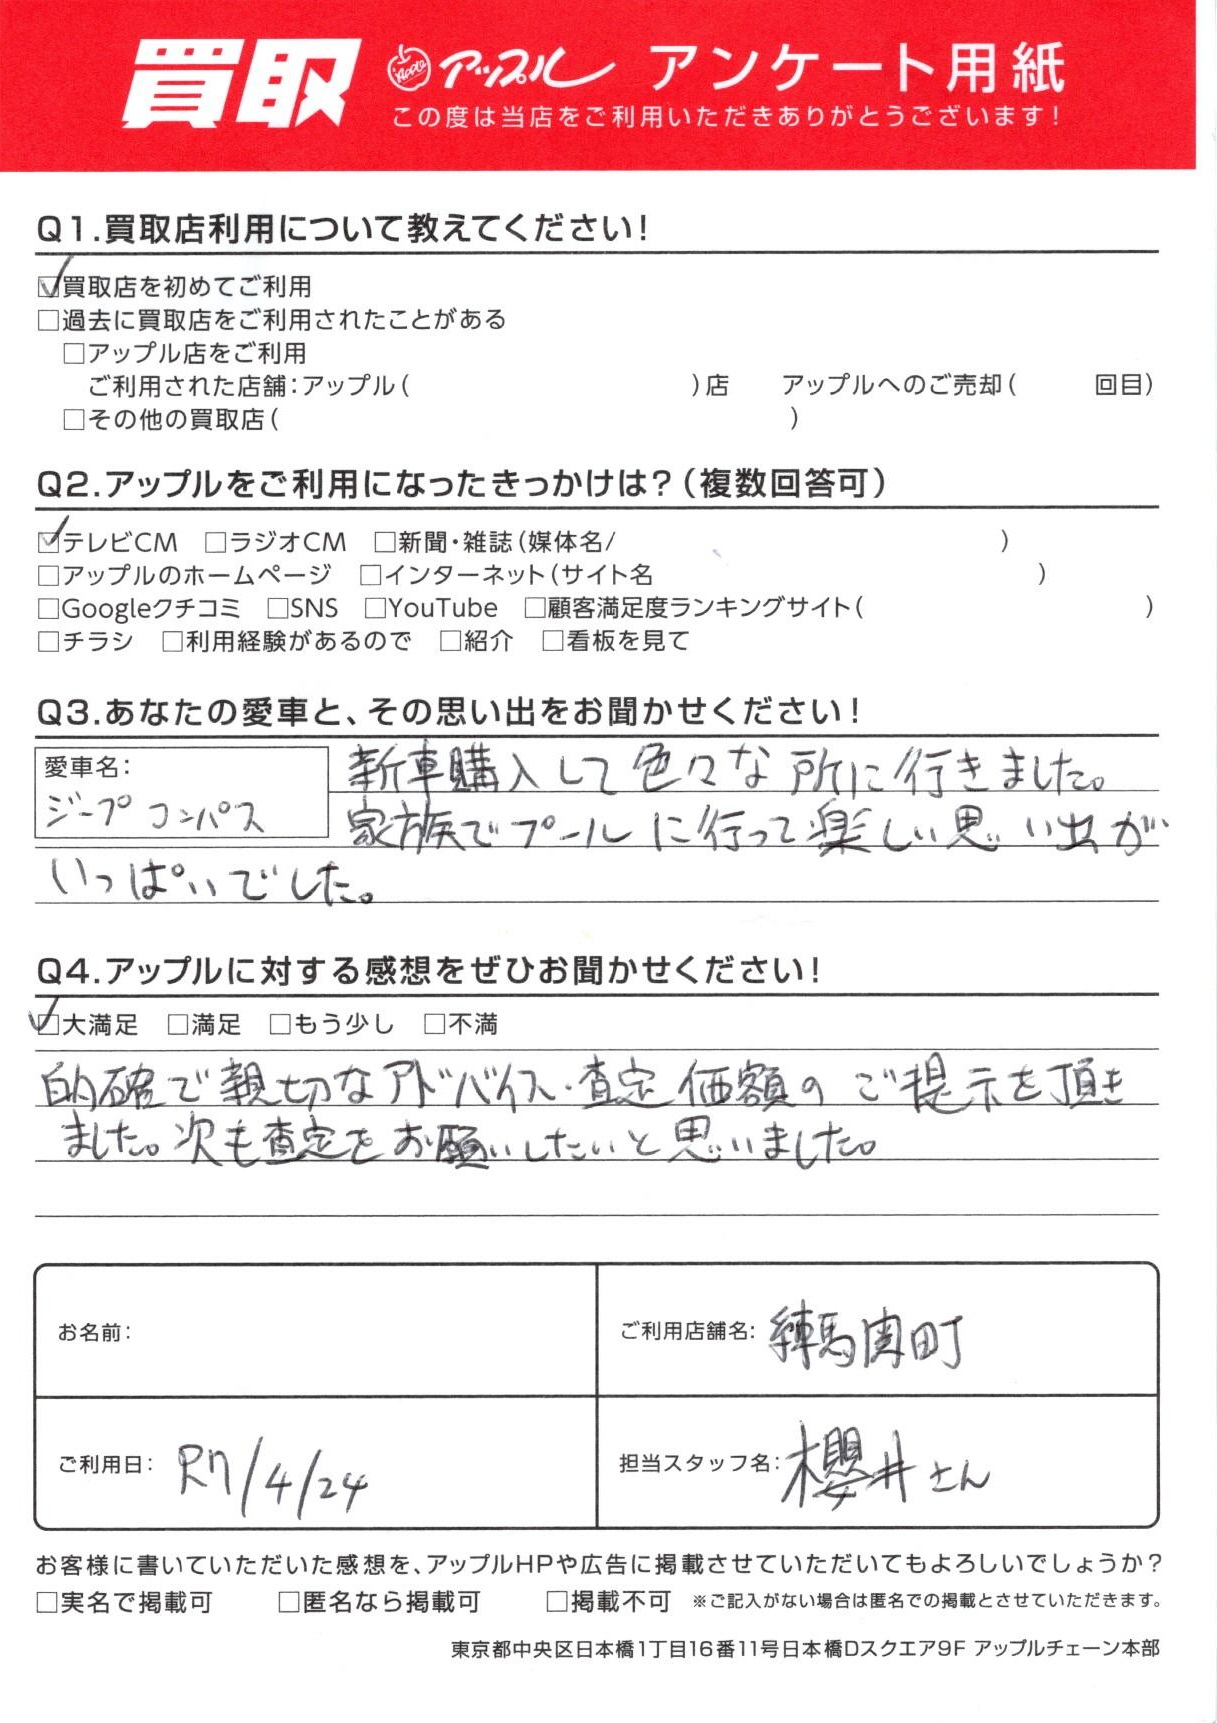 買取 アップル アンケート用紙
この度は当店をご利用いただきありがとうございます!
Q1.買取店利用について教えてください!
☑買取店を初めてご利用
□過去に買取店をご利用されたことがある
□アップル店をご利用
ご利用された店舗:アップル( )店 アップルへのご売却( 回目)
□その他の買取店( )
Q2.アップルをご利用になったきっかけは?(複数回答可)
☑テレビCM □ラジオCM □新聞・雑誌(媒体名/ )
□アップルのホームページ □インターネット(サイト名 )
□Googleクチコミ □SNS □YouTube □顧客満足度ランキングサイト( )
□チラシ □利用経験があるので □紹介 □看板を見て
Q3.あなたの愛車と、その思い出をお聞かせください!
愛車名:
ジープ コンパス
新車購入して色々な所に行きました。
家族でプールに行って楽しい思い出が
いっぱいでした。
Q4.アップルに対する感想をぜひお聞かせください!
☑大満足 □満足 □もう少し □不満
的確で親切なアドバイス・査定価額のご提示を頂き
ました。次も査定をお願いしたいと思いました。
お名前:
ご利用店舗名: 練馬関町
ご利用日: R7/4/24
担当スタッフ名: 櫻井さん
お客様に書いていただいた感想を、アップルHPや広告に掲載させていただいてもよろしいでしょうか?
□実名で掲載可 □匿名なら掲載可 □掲載不可 ※ご記入がない場合は匿名での掲載とさせていただきます。
東京都中央区日本橋1丁目16番11号日本橋Dスクエア9F アップルチェーン本部